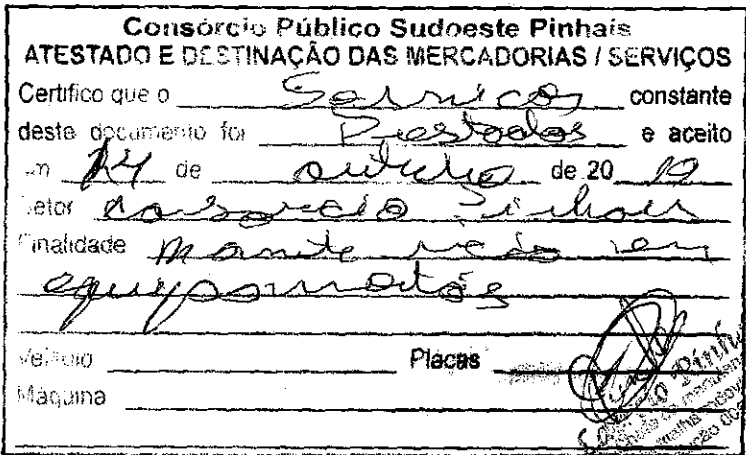 Consórcio Público Sudoeste Pinhais
ATESTADO E DESTINAÇÃO DAS MERCADORIAS / SERVIÇOS
Certifico que o Serviços constante
deste documento foi Prestados e aceito
Em 14 de outubro de 20 19
Setor Consorcio Pinhais
Finalidade Manutenção em
equipamentos
Veículo Placas
Máquina